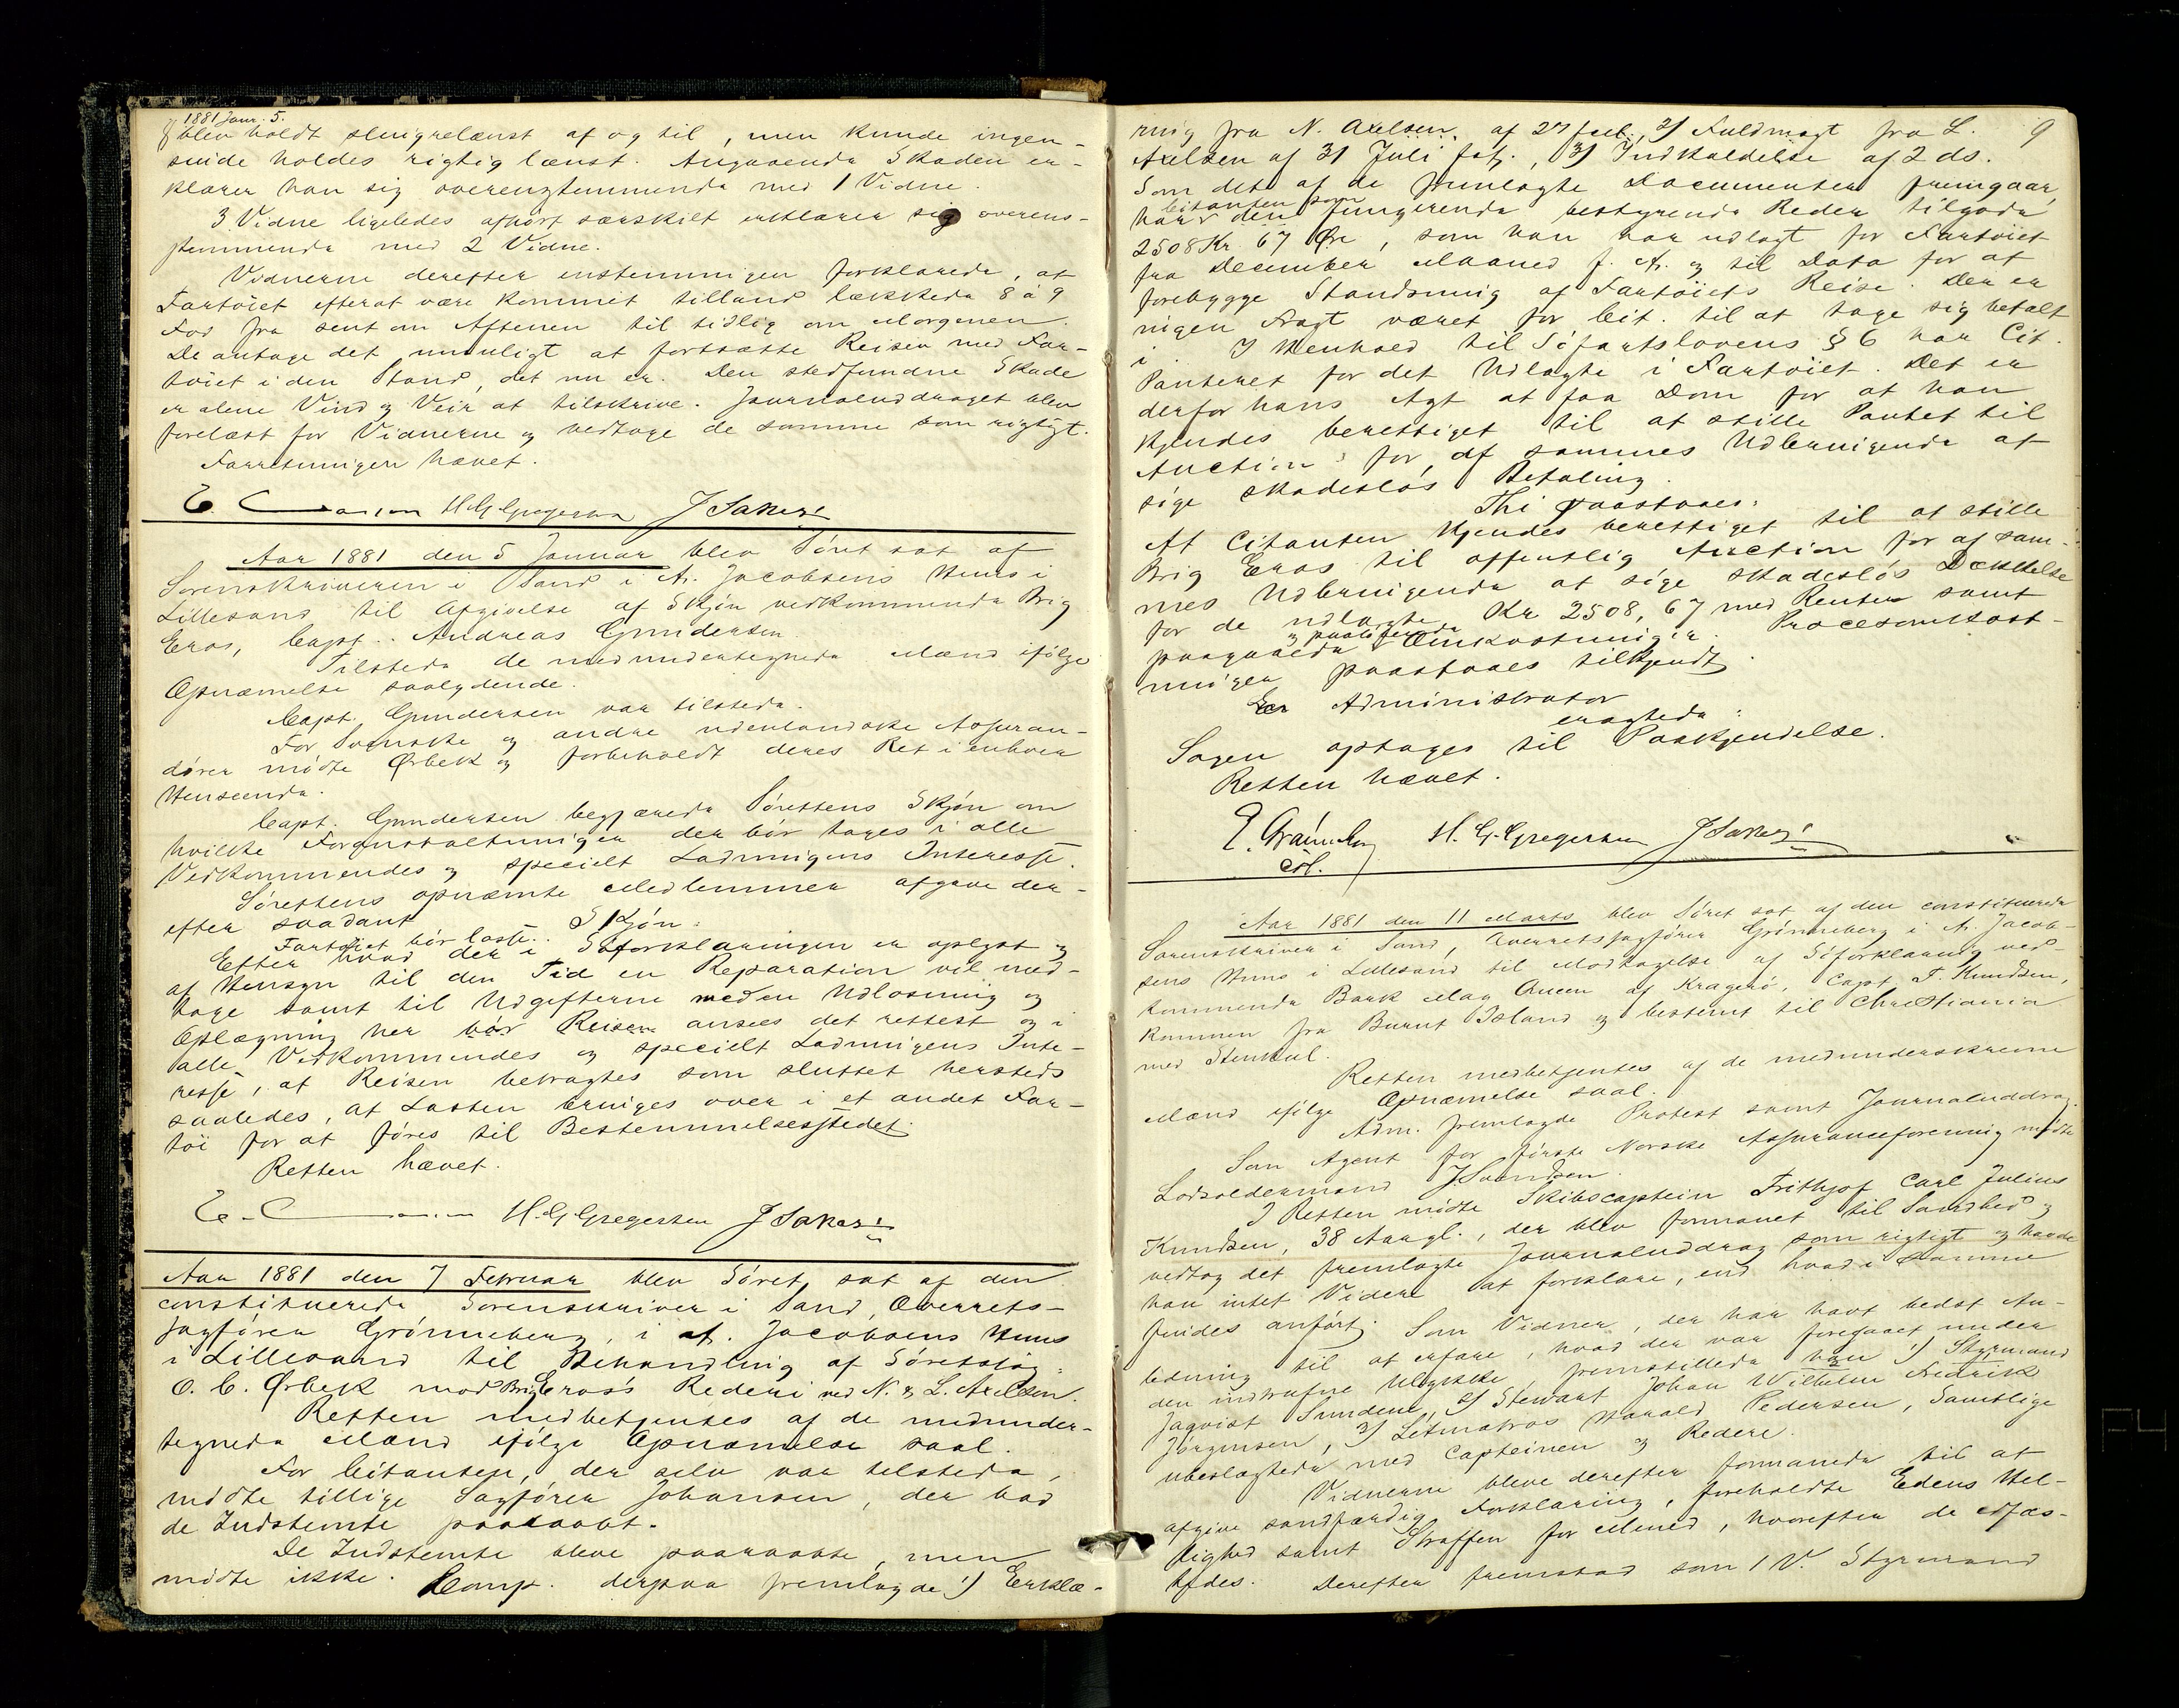 1881 Janr. 5.
8 blev holdt slingrelænst af og til, men kunde ingen-
sinde holdes rigtig lænst. Angaaende Skaden er-
klærer han sig overensstemmende med 1 Vidne.
3 Vidne ligeledes afhørt særskilt erklærer sig overens-
stemmende med 2 Vidne.
Vidnerne derefter enstemmigen forklarede, at
Fartøiet efterat være kommet tilland lækkede 8 à 9
Fod fra sent om Aftenen til tidlig om Morgenen.
De antage det umuligt at fortsætte Reisen med Far-
tøiet i den Stand, det nu er. Den stedfundne Skade
er alene Vind og Veir at tilskrive. Journaluddraget blev
forelæst for Vidnerne og vedtoge de samme som rigtigt.
Forretningen hævet.
H G Gregersen J Saker
Aar 1881 den 5 Januar blev Søret sat af
Sorenskriveren i Sand i A. Jacobsens Huus i
Lillesand til Afgivelse af Skjøn vedkommende Brig
Eros, Capt. Andreas Gundersen.
Tilstede de medundertegnede Mænd ifølge
Opnævnelse saalydende.
Capt. Gundersen var tilstede.
For Svenske og andre udenlandske Assuran-
dører mødte Ørbek og forbeholdt deres Ret i enhver
Henseende.
Capt. Gundersen begjærede Sørettens Skjøn om
hvilke Foranstaltninger der bør tages i alle
Vedkommendes og specielt Ladningens Interesse.
Sørettens opnævnte Medlemmer afgave der-
efter saadant Skjøn:
Fartøiet bør losse.
Efter hvad der i Søforklaringen er oplyst og
af Hensyn til den Tid en Reparation vil med-
tage samt til Udgifterne med en Udlosning og
Oplægning her bør Reisen ansees det rettest og i
alle Vedkommendes og specielt Ladningens Inte-
resse, at Reisen betragtes som sluttet hersteds
saaledes, at Lasten bringes over i et andet Far-
tøi for at føres til Bestemmelsesstedet.
Retten hævet.
H. G Gregersen J Saker
Aar 1881 den 7 Februar blev Søret sat af den
constituerede Sorenskriver i Sand, Overrets-
sagfører Grønneberg, i A. Jacobsens Huus
i Lillesand til Behandling af Søretssag:
O. C. Ørbek mod Brig Eros's Rederi ved N. & L. Axelsen.
Retten medbetjentes af de medunder-
tegnede Mænd ifølge Opnævnelse saal.
For Citanten, der selv var tilstede,
mødte tillige Sagfører Johansen, der bad
de Indstemte paaraabt.
De Indstemte bleve paaraabte, men
mødte ikke. Comp. derpaa fremlagde 1) Erklæ-
9
ring fra N. Axelsen af 27 , 2) Fuldmagt fra L.
Axelsen af 31 Juli , 3) Indkaldelse af 2 ds.
Som det af de fremlagte Documenter fremgaar,
Citanten som
har den fungerende bestyrende Reder tilgode
2508 Kr. 67 Øre, som han har udlagt for Fartøiet
fra December Maaned f. A. og til Dato for at
forebygge Standsning af Fartøiets Reise. Der er
ingen Fragt været for Cit. til at tage sig betalt
i. I Henhold til Søfartslovens § 6 har Cit.
Panteret for det Udlagte i Fartøiet. Det er
derfor hans Agt at faa Dom for at han
kjendes berettiget til at stille Pantet til
Auction for af sammes Udbringende at
søge skadesløs Betaling.
Thi paastaaes:
At Citanten kjendes berettiget til at stille
Brig Eros til offentlig Auction for af sam-
mes Udbringende at søge skadesløs Dækkelse
for de udlagte Kr. 2508,67 med Renter samt
paagaaede Omkostninger. Procesomkost-
ninger paastaaes tilkjendt.
Administrator
eragtede:
Sagen optages til Paakjendelse.
Retten hævet.
E. Grønneberg H. G. Gregersen J Saker
cst.
Aar 1881 den 11 Marts blev Søret sat af den constituerede
Sorenskriver i Sand, Overretssagfører Grønneberg i A. Jacob-
sens Huus i Lillesand til Modtagelse af Søforklaring ved-
kommende Bark May Queen af Kragerø, Capt. F. Knudsen,
kommen fra Burnt Island og bestemt til Christiania
med Stenkul.
Retten medbetjentes af de medunderskrevne
Mænd ifølge Opnævnelse saal.
Adm. fremlagde Protest samt Journaluddrag.
Som Agent for første Norske Assuranceforening mødte
Lodsoldermand J. Svendsen.
I Retten mødte Skibscaptein Frithjof Carl Julius
Knudsen, 38 Aar gl., der blev formanet til Sandhed og
vedtog det fremlagte Journaluddrag som rigtigt og havde
han intet Videre at forklare, end hvad i samme
findes anført. Som Vidner, der har havt bedst An-
ledning til at erfare, hvad der var foregaaet under
den indtrufne Ulykke fremstillede han 1) Styrmand
Jaqvist Sundene, 2) Stewart Johan Wilhelm Fredrik
Jørgensen, 3) Letmatros Harald Pedersen, Samtlige
ubeslægtede med Capteinen og Redere.
Vidnerne bleve derefter formanede til at
afgive sandfærdig Forklaring, foreholdte Edens Hel-
lighed samt Straffen for Meened, hvorefter de edfæs-
tedes. Derefter fremstod som 1 V. Styrmand